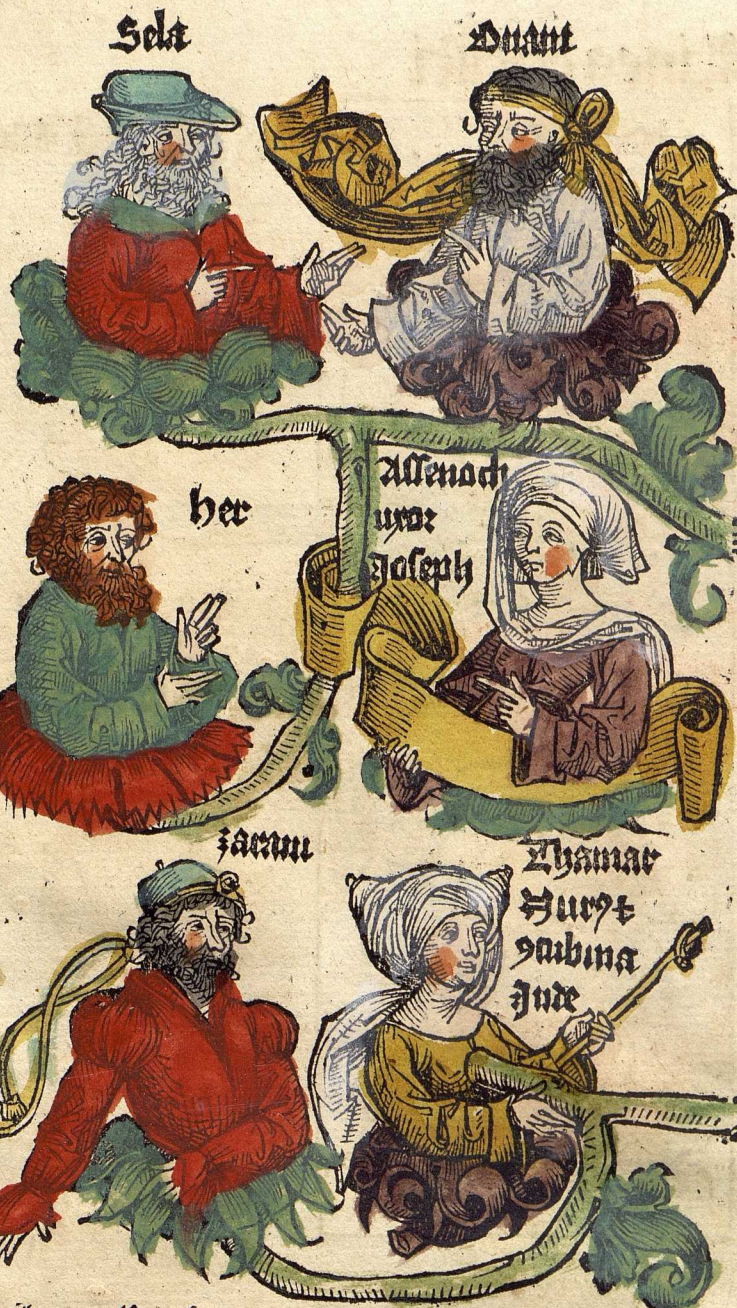 Sela
Onam
Assenoch
uxor
Joseph
her
zaram
Thamar
Nur⁊t
ꝯcubina
Jude